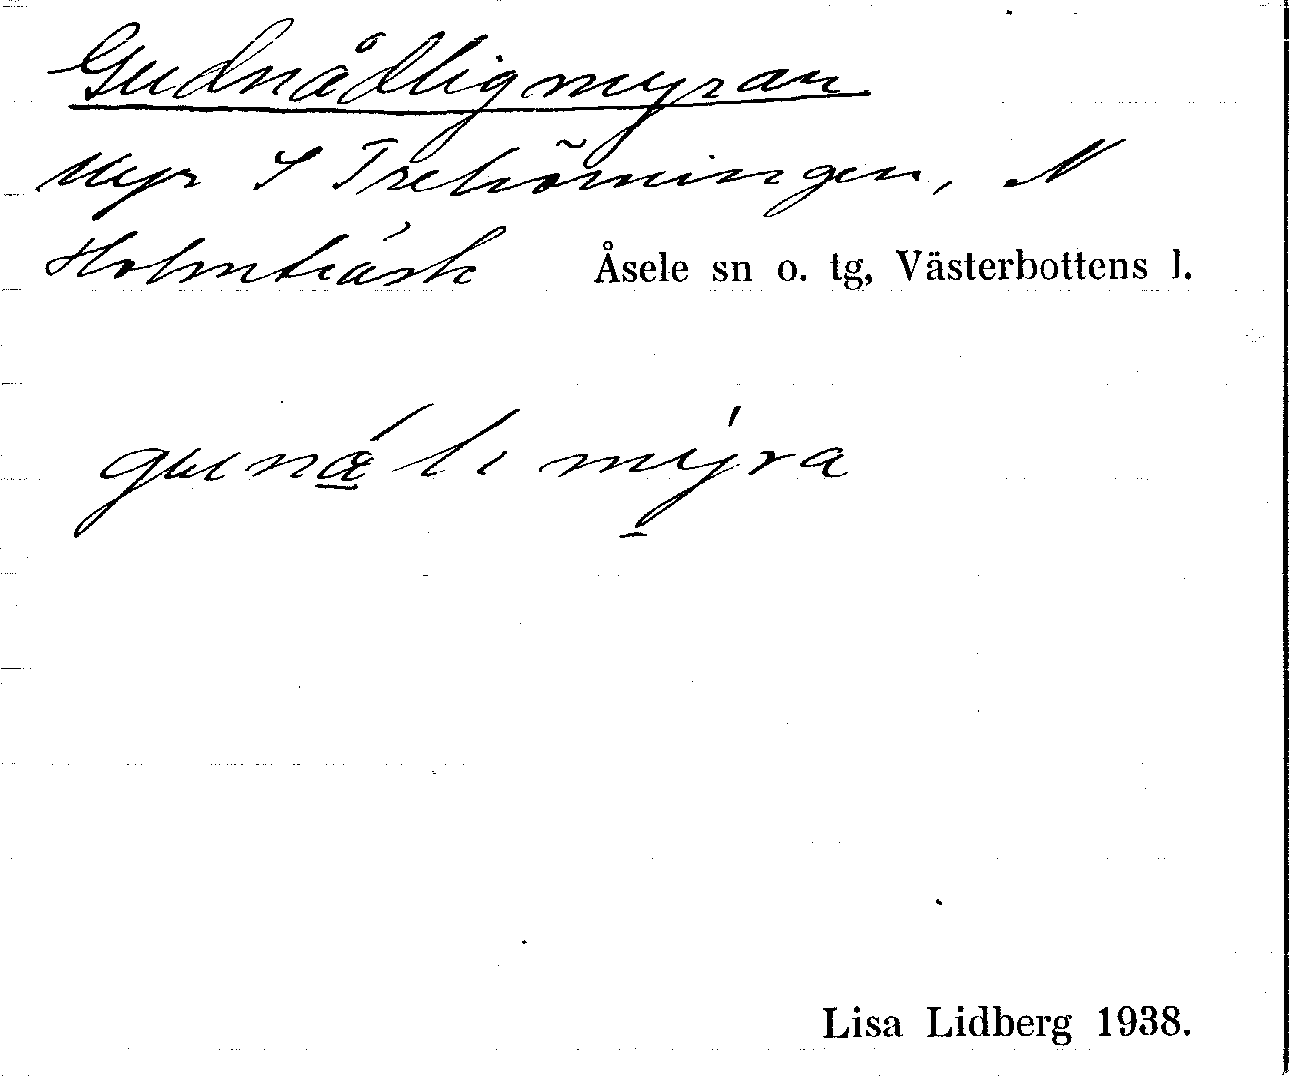 Gudnådligmyran
Myr S Trehörningen, N
Holmträsk Åsele sn o. tg, Västerbottens l.
gunǽli mýra
Lisa Lidberg 1938.